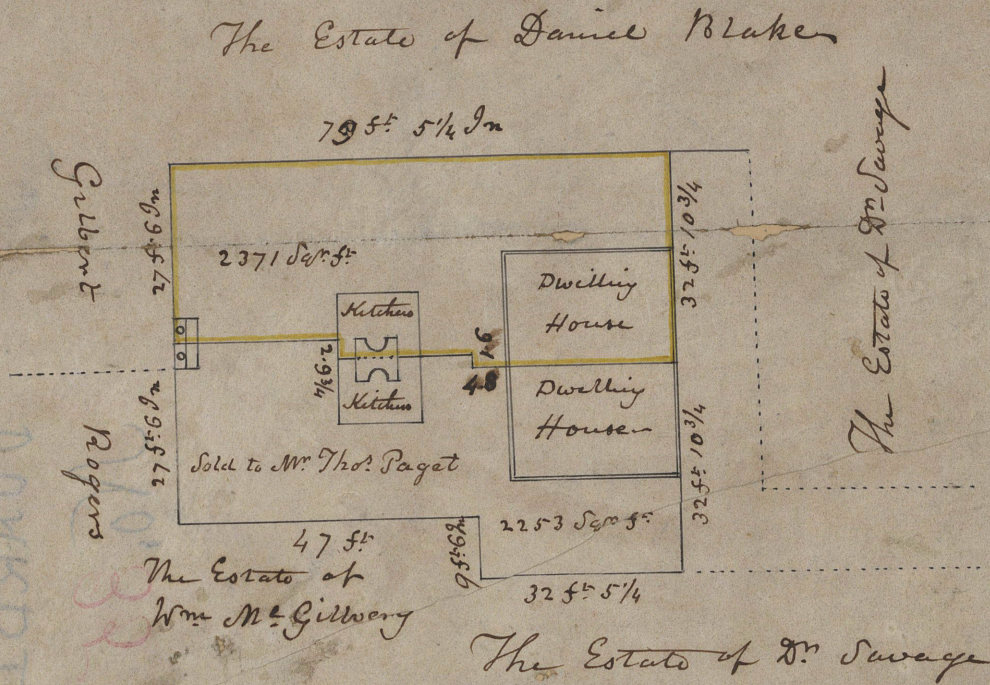 The Estate of Daniel Blake
79 ft 5 1/4 In
Gilbert
27 ft 6 In
2371 Sqr ft
32 ft 10 3/4
The Estate of Dr Savage
Kitchen
Dwelling
House
2.9 3/4
Kitchen
Dwelling
House
27 ft 6 In
Rogers
Sold to Mr Thos Paget
32 ft 10 3/4
47 ft
2253 Sqr ft
32 ft 5 1/4
The Estate of
Wm McGillvery
The Estate of Dr Savage